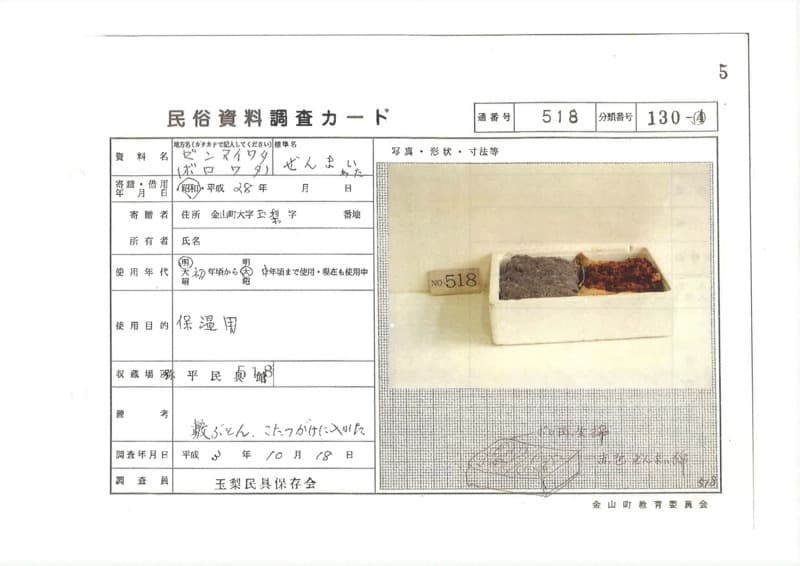 5
民俗資料調査カード
通番号 518 分類番号 130-④
資料名
地方名(カタカナで記入してください)
ゼンマイワタ
(ボロワタ)
標準名
ぜんまいわた
寄贈・借用年月日 昭和・平成 28年 月 日
寄贈者 住所 金山町大字玉梨字 番地
所有者 氏名
使用年代 明大昭 初年頃から 明大昭 年頃まで使用・現在も使用中
使用目的 保温用
収蔵場所 弥平民具館 518
備考 敷ぶとん、こたつがけに入れた
調査年月日 平成 3年 10月 18日
調査員 玉梨民具保存会
写真・形状・寸法等
NO.518
赤色ぜんまい綿
518
金山町教育委員会